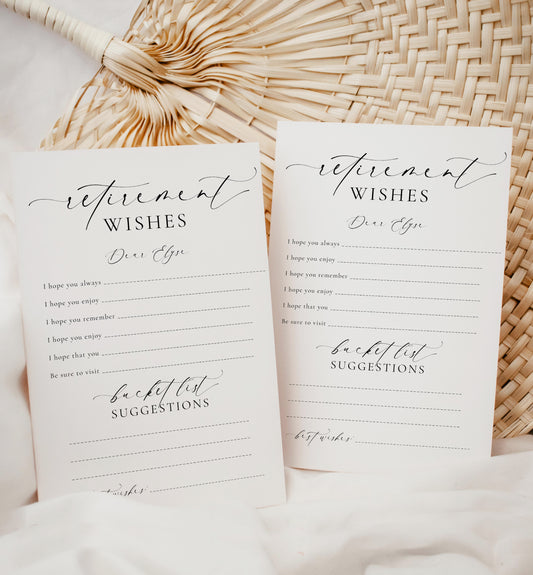 retirement
WISHES
Dear Elyse
I hope you always
I hope you enjoy
I hope you remember
I hope you enjoy
I hope that you
Be sure to visit
bucket list
SUGGESTIONS
best wishes
retirement
WISHES
Dear Elyse
I hope you always
I hope you enjoy
I hope you remember
I hope you enjoy
I hope that you
Be sure to visit
bucket list
SUGGESTIONS
best wishes